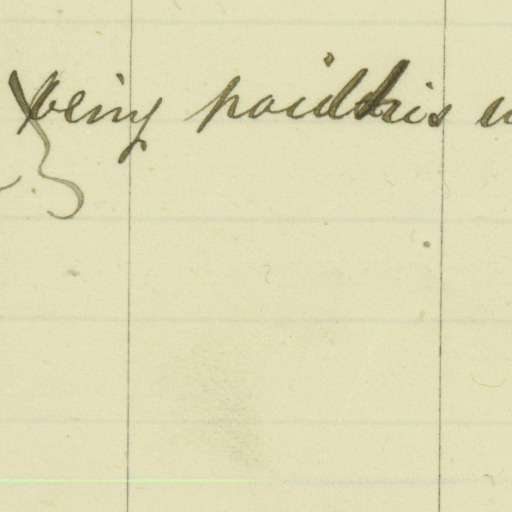 being paid his